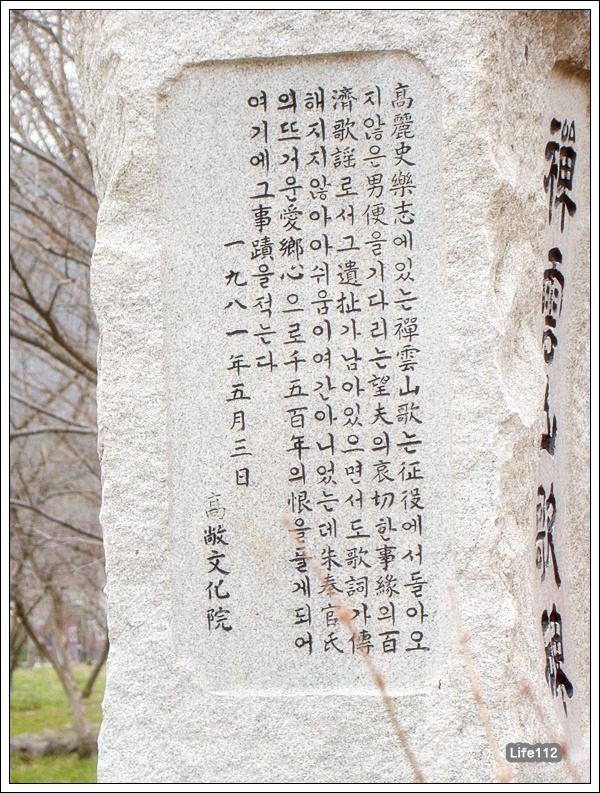 禪雲山歌碑
高麗史樂志에있는禪雲山歌는征役에서돌아오
지않은男便을기다리는望夫의哀切한事緣의百
濟歌謠로서그遺址가남아있으면서도歌詞가傳
해지지않아아쉬움이여간아니었는데朱奉官氏
의뜨거운愛鄕心으로千五百年의恨을풀게되어
여기에그事蹟을적는다
一九八一年五月三日
高敞文化院
Life112